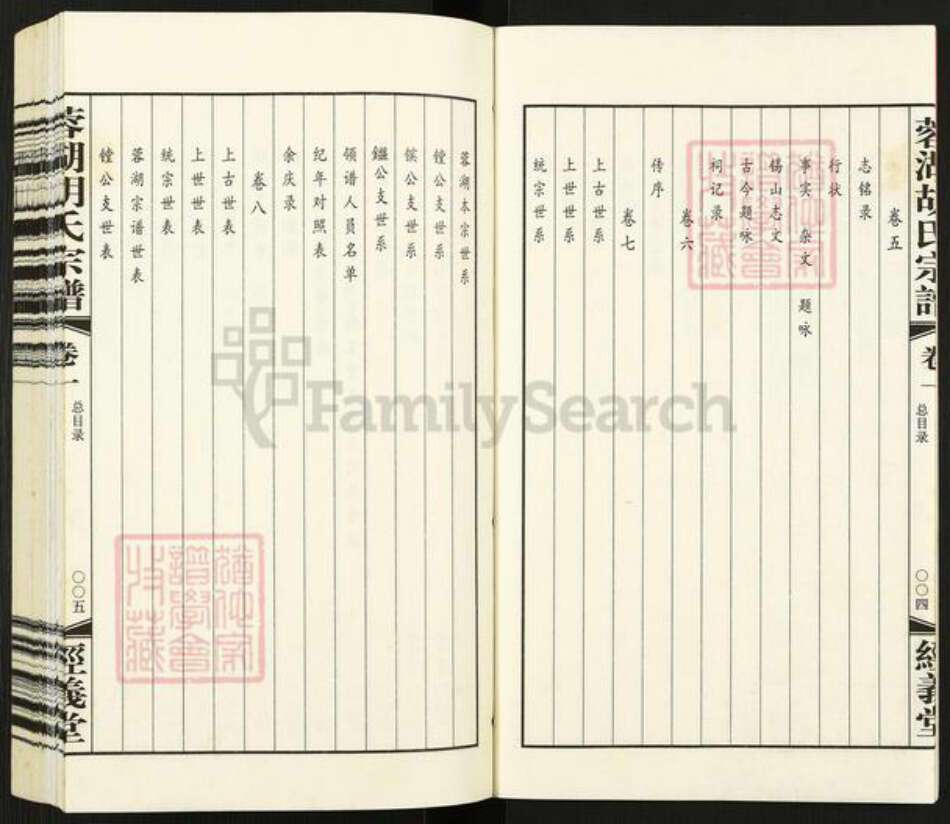 蓉湖胡氏宗谱
卷一
总目录
〇〇四
經義堂
卷五
志铭录
行状
事实 杂文 题咏
锡山志文
古今题咏
祠记录
卷六
传序
卷七
上古世系
上世世系
统宗世系
蓉湖本宗世系
镗公支世系
镔公支世系
鎡公支世系
领谱人员名单
纪年对照表
余庆录
卷八
上古世表
上世世表
统宗世表
蓉湖宗谱世表
镗公支世表
蓉湖胡氏宗譜
卷一
总目录
〇〇五
經義堂
FamilySearch
譜學會
收藏